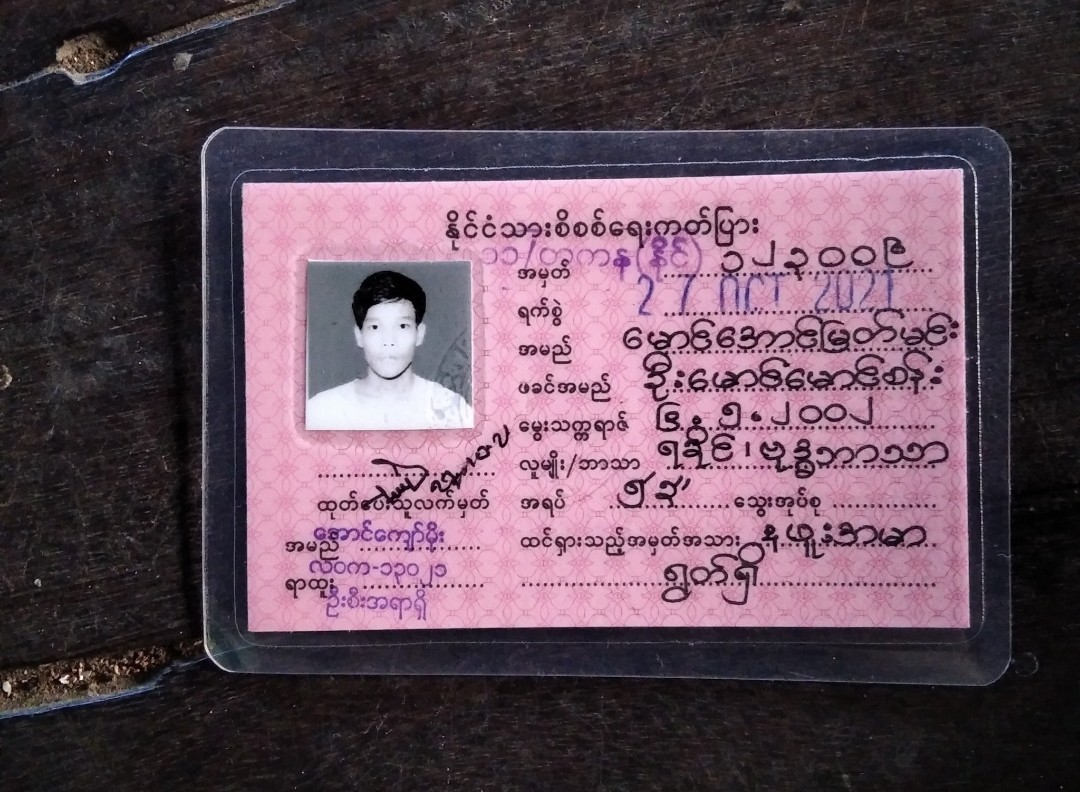 နိုင်ငံသားစိစစ်ရေးကတ်ပြား
၁၁/တကန(နိုင်)
အမှတ် ၁၂၃၀၀၉
ရက်စွဲ 27 OCT 2021
အမည် မောင်အောင်မြတ်မင်း
ဖခင်အမည် ဦးမောင်မောင်စန်း
မွေးသက္ကရာဇ် ၆.၅.၂၀၀၂
လူမျိုး/ဘာသာ ရခိုင်၊ဗုဒ္ဓဘာသာ
အရပ် ၅' ၃" သွေးအုပ်စု
ထင်ရှားသည့်အမှတ်အသား နဖူးဘယာ
ရွတ်ရှိ
ထုတ်ပေးသူလက်မှတ်
အမည် အောင်ကျော်မိုး
လဝက-၁၃၀၂၁
ရာထူး ဦးစီးအရာရှိ